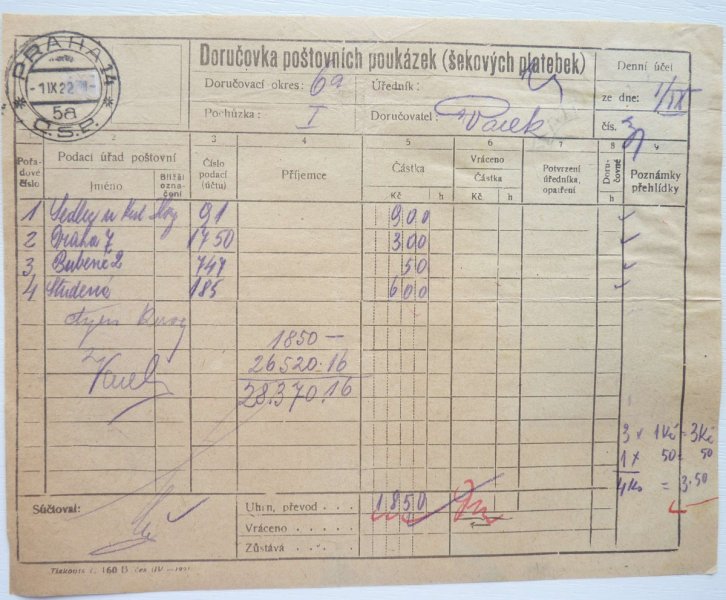 PRAHA 14
-1 IX 22
5a
Č.S.P.
Doručovka poštovních poukázek (šekových platebek)
Denní účet
Doručovací okres: 6a Úředník:
ze dne: 1/IX
Pochůzka: I Doručovatel: Vacek
čís. 3
2 3 4 5 6 7 8 9
Pořadové číslo
Podací úřad poštovní
Jméno
Bližší označení
Číslo podací (účtu)
Příjemce
Částka
Kč h
Vráceno
Částka
Kč h
Potvrzení úředníka, opatření
Doručovné
h
Poznámky přehlídky
1 Sedlec u Kut Hory 91 900
2 Praha 7 1750 300
3 Bubeneč 2 747 50
4 Studená 185 600
1850 —
26520.16
Vacek
28.370.16
3 x 1Kč = 3Kč
1 x 50 - 50
4Ks = 3.50
Súčtoval:
Uhrn, převod 1850
Vráceno
Zůstává
Tiskopis č. 160 B